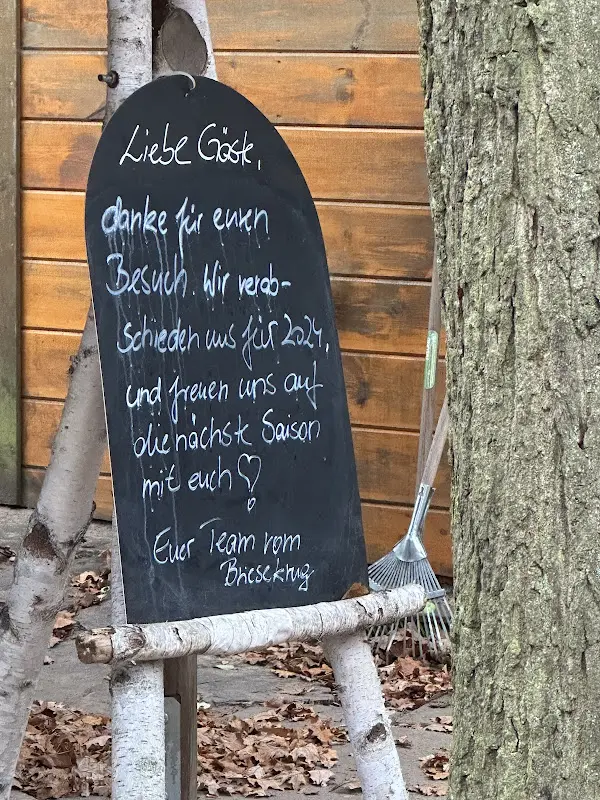 Liebe Gäste,
danke für euren
Besuch. Wir verab-
schieden uns für 2024,
und freuen uns auf
die nächste Saison
mit euch♡!
Euer Team vom
Briesekrug